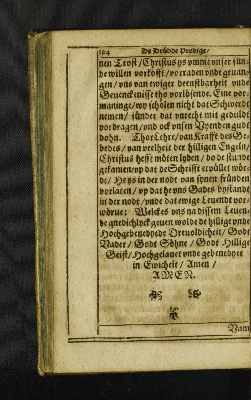 104 De Drüdde Predige/
nen Trost/ Christus ys umme unser sün-
de willen vorkofft/ vorraden unde gevan-
gen/ uns van ewiger denstbarheit unde
Gevencknisse tho vorlösende. Eine vor-
maninge/ wy schölen nicht dat Schwerdt
nemen/ sünder dat unrecht mit geduldt
vordragen/ und ock unsen Vyenden gudt
dohn. Thor Lehre/ van Krafft des Ge-
bedes/ van veelheit der hilligen Engeln/
Christus hefft möten lyden/ do de stunde
gekamen/ up dat de Schrifft erfüllet wör-
de/ He ys in der nodt van synen fründen
vorlaten/ up dat he uns Gades bystandt
in der nodt/ unde dat ewige Levendt vor-
würve: Welckes uns na dissem Leven-
de gnedichlyck geven wolde de hillige unde
Hochgebenedyede Drevoldicheit/ Godt
Vader/ Godt Söhne/ Godt Hillige
Geist/ Hochgelavet unde gebenedyet
in Ewicheit/ Amen/
AMEN.